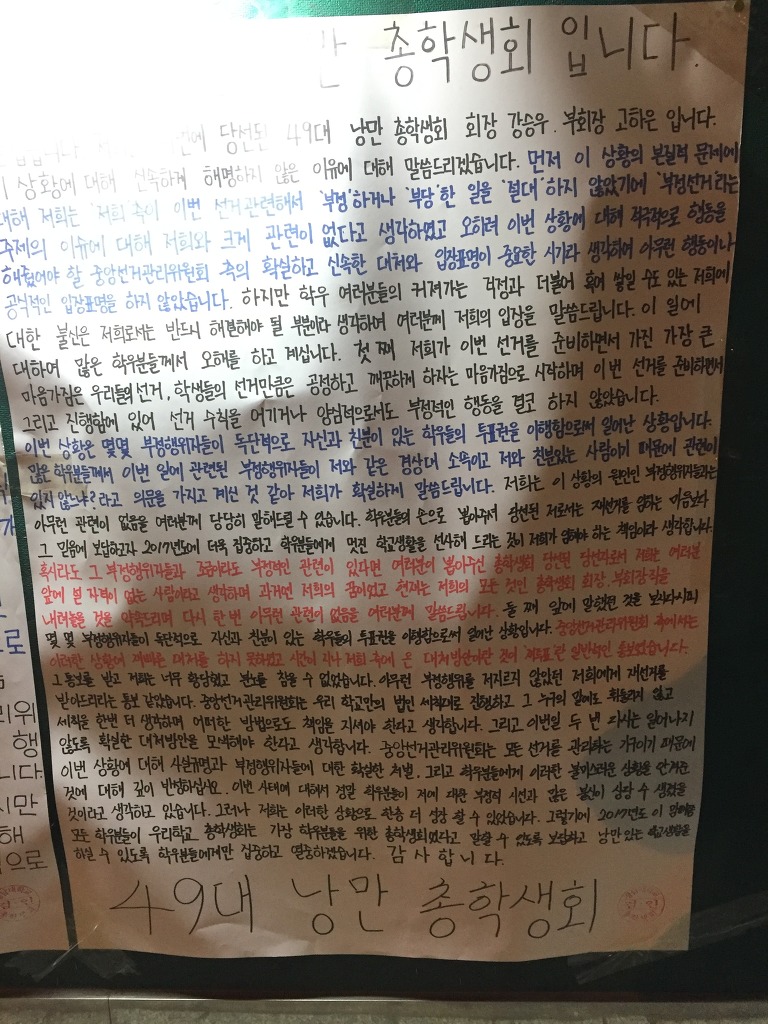 만 총학생회 입니다.
당선된 49대 낭만 총학생회 회장 강승우. 부회장 고하은 입니다.
상황에 대해 신속하게 해명하지 않은 이유에 대해 말씀드리겠습니다. 먼저 이 상황의 본질적 문제에
대해 저희는 '저희'측이 이번 선거관련해서 '부정'하거나 '부당'한 일을 '절대'하지 않았기에 '부정선거'라는
주제의 이슈에 대해 저희와 크게 관련이 없다고 생각하였고 오히려 이번 상황에 대해 적극적으로 행동을
해줬어야 할 중앙선거관리위원회 측의 확실하고 신속한 대처와 입장표명이 중요한 시기라 생각하여 아무런 행동이나
공식적인 입장표명을 하지 않았습니다. 하지만 학우 여러분들의 커져가는 걱정과 더불어 혹여 쌓일 수도 있는 저희에
대한 불신은 저희로서는 반드시 해결해야 될 부분이라 생각하여 여러분께 저희의 입장을 말씀드립니다. 이 일에
대하여 많은 학우분들께서 오해를 하고 계십니다. 첫 째 저희가 이번 선거를 준비하면서 가진 가장 큰
마음가짐은 우리들의 선거, 학생들의 선거만큼은 공정하고 깨끗하게 하자는 마음가짐으로 시작하며 이번 선거를 준비하면서
그리고 진행함에 있어 선거 수칙을 어기거나 양심적으로서도 부정적인 행동을 결코 하지 않았습니다.
이번 상황은 몇몇 부정행위자들이 독단적으로 자신과 친분이 있는 학우들의 투표권을 이행함으로써 일어난 상황입니다.
많은 학우분들께서 이번 일에 관련된 부정행위자들이 저와 같은 경상대 소속이고 저와 친분있는 사람이기 때문에 관련이
있지 않느냐? 라고 의문을 가지고 계신 것 같아 저희가 확실하게 말씀드립니다. 저희는 이 상황의 원인인 부정행위자들과는
아무런 관련이 없음을 여러분께 당당히 말해드릴 수 있습니다. 학우분들의 손으로 뽑아주셔 당선된 저로서는 재선거를 임하는 마음보다
그 믿음에 보답하고자 2017년도에 더욱 집중하고 학우분들에게 멋진 학교생활을 선사해 드리는 것이 저희가 임해야 하는 책임이라 생각합니다.
혹시라도 그 부정행위자들과 조금이라도 부정적인 관련이 있다면 여러분이 뽑아주신 총학생회 당선된 당선자로서 저희는 여러분
앞에 설 자격이 없는 사람이라고 생각하며 과거엔 저희의 꿈이었고 현재는 저희의 모든 것인 총학생회 회장, 부회장직을
내려놓을 것을 약속드리며 다시 한번 아무런 관련이 없음을 여러분께 말씀드립니다. 둘 째 앞에 말했던 것을 보시다시피
몇 몇 부정행위자들이 독단적으로 자신과 친분이 있는 학우들의 투표권을 이행함으로써 일어난 상황입니다. 중앙선거관리위원회 측에서는
이러한 상황에 재빠른 대처를 하지 못하였고 시간이 지나 저희 측에 온 대처방안이란 것이 '재투표'란 일방적인 통보였습니다.
그 통보를 받고 저희는 너무 황당했고 분노를 참을 수 없었습니다. 아무런 부정행위를 저지르지 않았던 저희에게 재선거를
받아드리라는 통보 같았습니다. 중앙선거관리위원회는 우리 학교만의 법인 세칙대로 진행하고 그 누구의 말에도 휘둘리지 않고
세칙을 한번 더 생각하며 어떠한 방법으로도 책임을 지셔야 한다고 생각합니다. 그리고 이번일 두 번 다시는 일어나지
않도록 확실한 대처방안을 모색해야 한다고 생각합니다. 중앙선거관리위원회는 모든 선거를 관리하는 기구이기 때문에
이번 상황에 대해 사실규명과 부정행위자들에 대한 확실한 처벌, 그리고 학우분들에게 이러한 불미스러운 상황을 안겨준
것에 대해 깊이 반성하십시오. 이번 사태에 대해서 정말 학우분들이 저에 대한 부정적 시선과 많은 불신이 상당 수 생겼을
것이라고 생각하고 있습니다. 그러나 저희는 이러한 상황으로 한층 더 성장 할 수 있었습니다. 그렇기에 2017년도 이
모든 학우분들이 우리학교 총학생회는 가장 학우분들을 위한 총학생회였다고 말할 수 있도록 보답하고 낭만 있는 학교생활을
하실 수 있도록 학우분들에게만 집중하고 열중하겠습니다. 감 사 합 니 다.
49대 낭만 총학생회